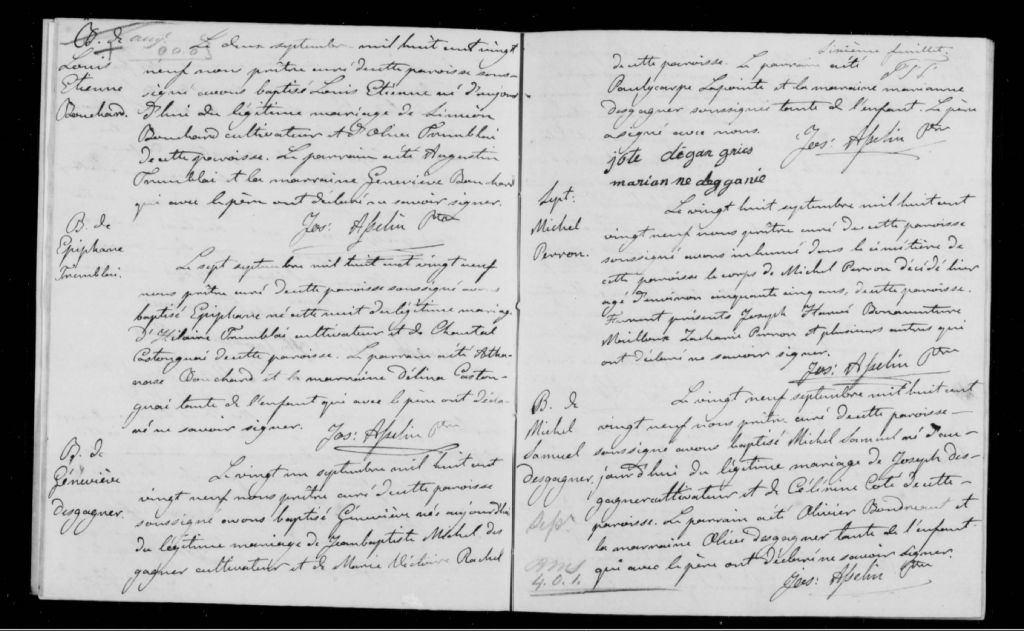 B. de
Louis
Etienne
Bouchard.
Le deux septembre mil huit cent vingt
neuf nous prêtre curé de cette paroisse sous-
signé avons baptisé Louis Etienne né d'aujour
d'hui du légitime mariage de Siméon
Bouchard cultivateur et d'Olive Tremblai
de cette paroisse. Le parrain a été Augustin
Tremblai et la marraine Geneviève Bouchard
qui avec le père ont déclaré ne savoir signer.
Jos: Asselin Ptre
B. de
Epiphane
Tremblai.
Le sept septembre mil huit cent vingt neuf
nous prêtre curé de cette paroisse soussigné avons
baptisé Epiphane né cette nuit du légitime mariage
d'Hilaire Tremblai cultivateur et de Chantal
Castonguai de cette paroisse. Le parrain a été Atha-
nase Bouchard et la marraine Délina Caston-
guai tante de l'enfant qui avec le père ont décla-
ré ne savoir signer.
Jos: Asselin Ptre
B. de
Géneviève
desgagner
Le vingt un septembre mil huit cent
vingt neuf nous prêtre curé de cette paroisse
soussigné avons baptisé Géneviève née aujourd'hui
du légitime mariage de Jean baptiste Michel des
gagner cultivateur et de Marie Rachel
Sixième feuillet.
de cette paroisse. Le parrain a été
Paulycarpe Lajointe et la maraine marianne
desgagner soussignée tante de l'enfant. Le père
a signé avec nous.
Jos: Asselin Ptre
jbte dégar gnies
marian ne degganié
Sept:
Michel
Perron.
Le vingt huit septembre mil huit cent
vingt neuf nous prêtre curé de cette paroisse
soussigné avons inhumé dans le cimétière de
cette paroisse le corps de Michel Perron décédé hier
agé d'environ cinquante cinq ans, de cette paroisse.
Furent présents Joseph Hervé Bonaventure
Mailloux Zacharie Perron et plusieurs autres qui
ont déclaré ne savoir signer.
Jos: Asselin Ptre
B. de
Michel
Samuel
desgagner
Le vingt neuf septembre mil huit cent
vingt neuf nous prêtre curé de cette paroisse
soussigné avons baptisé Michel Samuel né d'au-
jourd'hui du légitime mariage de Joseph des-
gagner cultivateur et de Célérine Coté de cette
paroisse. Le parrain a été Olivier Boudreau et
la marraine Olive desgagner tante de l'enfant
qui avec le père ont déclaré ne savoir signer.
Jos: Asselin Ptre
Sept.
BMS
4.0.1.